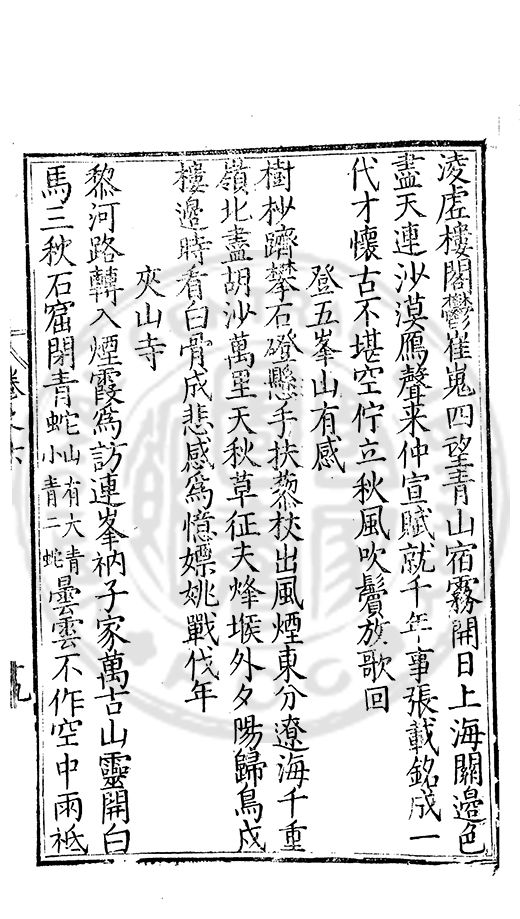 淩虛樓閣鬱崔嵬四望青山宿霧開日上海關邊色
盡天連沙漠鴈聲来仲宣賦就千年事張載銘成一
代才懷古不堪空佇立秋風吹鬢放歌回
登五峯山有感
樹杪躋攀石磴懸手扶藜杖出風煙東分遼海千重
嶺北盡胡沙萬里天秋草征夫烽堠外夕陽歸鳥戍
樓邊時看白骨成悲感爲憶嫖姚戰伐年
夾山寺
黎河路轉入煙霞爲訪連峯衲子家萬古山靈開白
馬三秋石窟閉青蛇山有大青小青二蛇曇雲不作空中雨祗
卷之六